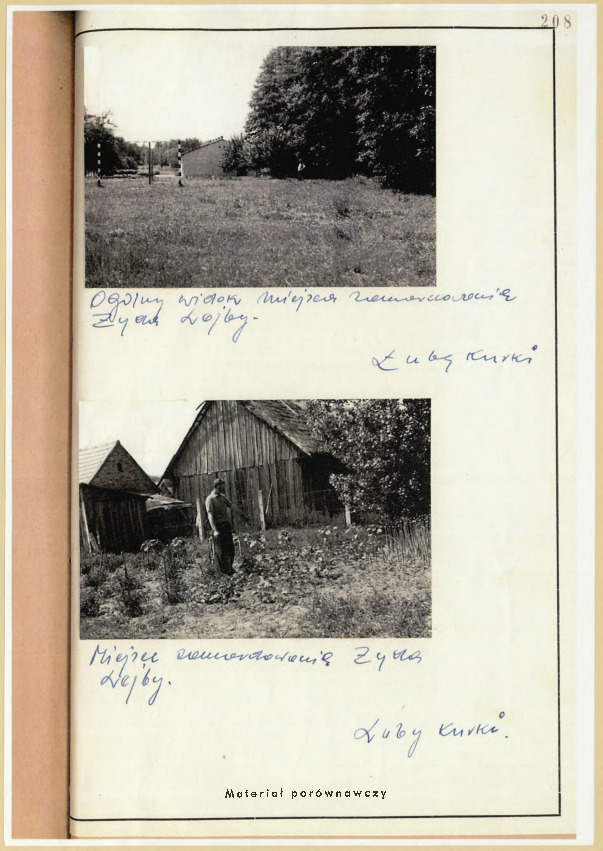 208
Ogólny widok miejsca zamordowania
Żyda Lejby.
Łuby Kurki
Miejsce zamordowania Żyda
Lejby.
Łuby Kurki.
Materiał porównawczy